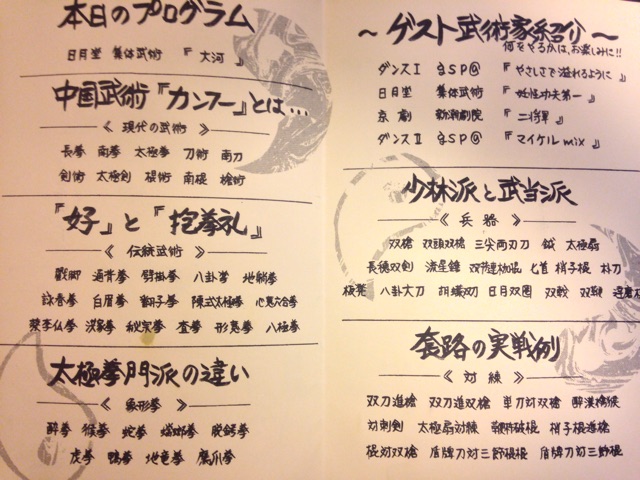 本日のプログラム
日月堂 集体武術 『大河』
中国武術『カンフー』とは...
《 現代の武術 》
長拳 南拳 太極拳 刀術 南刀
剣術 太極剣 棍術 南棍 槍術
『好』と『抱拳礼』
《 伝統武術 》
戳脚 通背拳 劈掛拳 八卦掌 地躺拳
詠春拳 白眉拳 翻子拳 陳式太極拳 心意六合拳
蔡李仏拳 洪家拳 秘宗拳 査拳 形意拳 八極拳
太極拳門派の違い
《 象形拳 》
酔拳 猴拳 蛇拳 蟷螂拳 脱銬拳
虎拳 鴨拳 地竜拳 鷹爪拳
～ゲスト武術家系紹介～
何をやるかは、お楽しみに!!
ダンスⅠ gSP@ 『やさしさで溢れるように』
日月堂 集体武術 『妖怪功夫第一』
京劇 新潮劇院 『二将軍』
ダンスⅡ gSP@ 『マイケルmix』
少林派と武当派
《 兵器 》
双槍 双頭双槍 三尖両刃刀 鉞 太極扇
長穂双剣 流星錘 匕首 梢子棍 朴刀
八卦大刀 胡蝶刀 日月双圏 双戟 双鞭
套路の実戦例
《 対練 》
双刀進槍 双刀進双槍 単刀対双槍 酔漢擒猴
対刺剣 太極扇対練 梢子棍進槍
棍対双槍 盾牌刀対三節棍棍 盾牌刀対三節棍